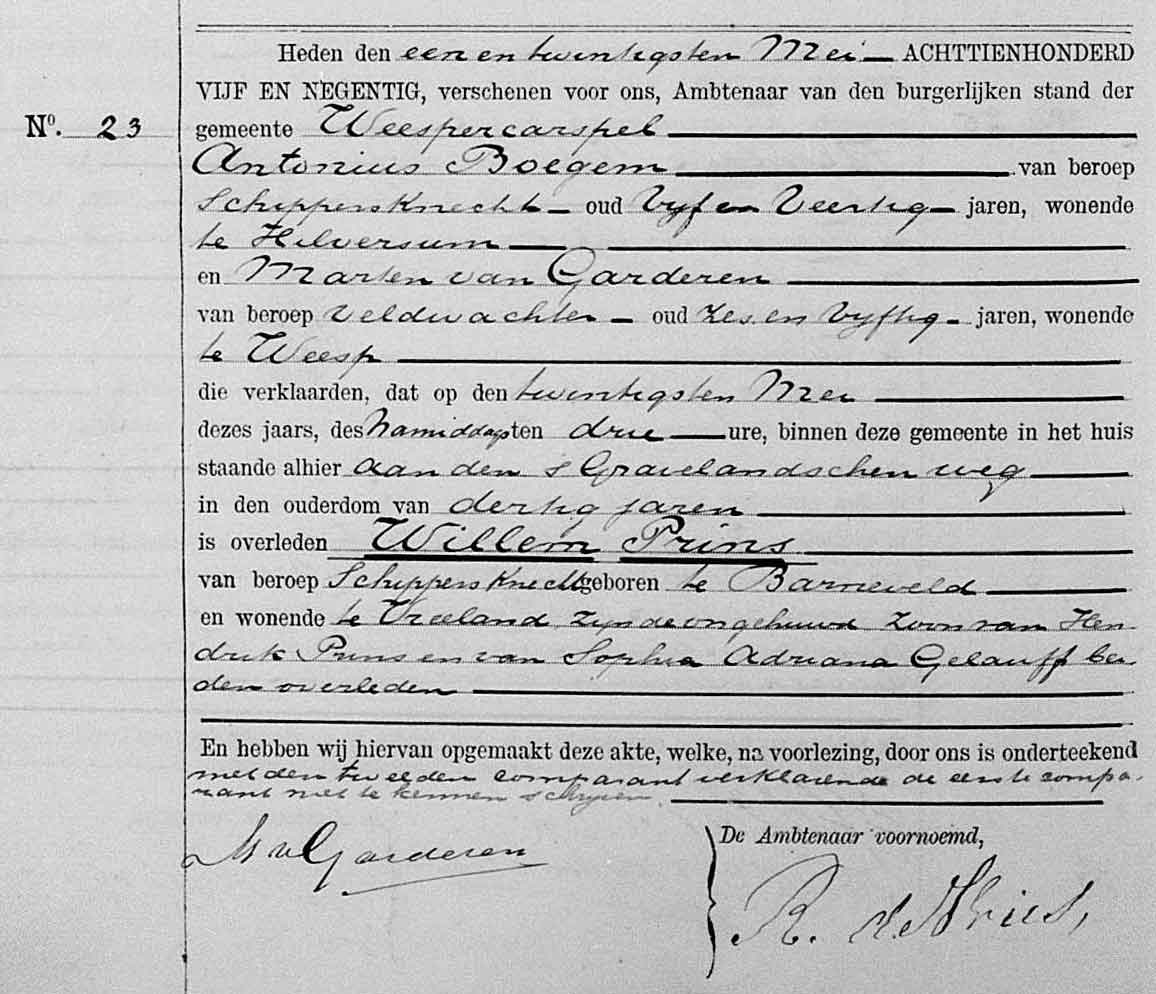 Heden den een en twintigsten Mei ACHTTIENHONDERD
VIJF EN NEGENTIG, verschenen voor ons, Ambtenaar van den burgerlijken stand der
No. 23
gemeente Weespercarspel
Antonius Boegem van beroep
Schippersknecht oud Vyf en Veertig jaren, wonende
te Hilversum
en Marten van Garderen
van beroep Veldwachter oud zes en Vyftig jaren, wonende
te Weesp
die verklaarden, dat op den twintigsten Mei
dezes jaars, des Namiddags ten drie ure, binnen deze gemeente in het huis
staande alhier aan den s Gravelandschen weg
in den ouderdom van dertig jaren
is overleden Willem Prins
van beroep Schippersknecht geboren te Barneveld
en wonende te Vreeland, zynde ongehuwd Zoon van Hen-
drik Prins en van Sophia Adriana Gelauff bei-
den overleden
En hebben wij hiervan opgemaakt deze akte, welke, na voorlezing, door ons is onderteekend
met den tweeden comparant verklarende de eerste compa-
rant niet te kennen schryven.
De Ambtenaar voornoemd,
M v Garderen
R. de Vries,